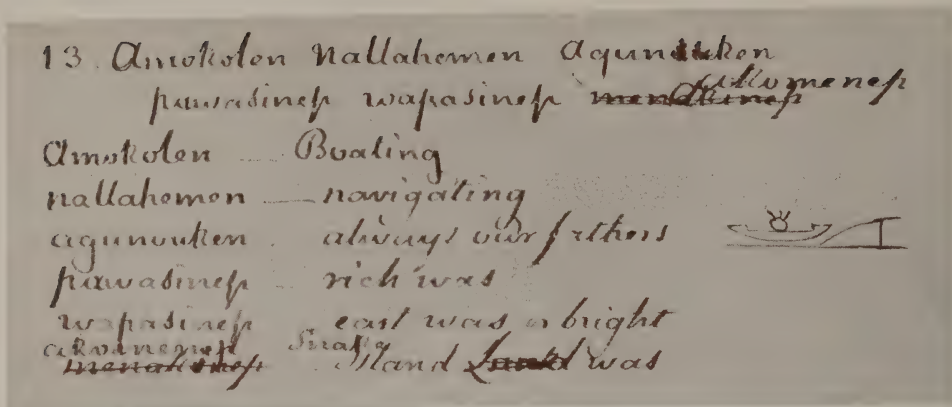 13. Amokolen Nallahemen Agunouken
pawasinep wapasinep menakinep akomenep
Amokolen Boating
nallahemen navigating
agunouken always our fathers
pawasinep rich was
wapasinep east was or bright
akomenep Snake
menakinep Island Land was